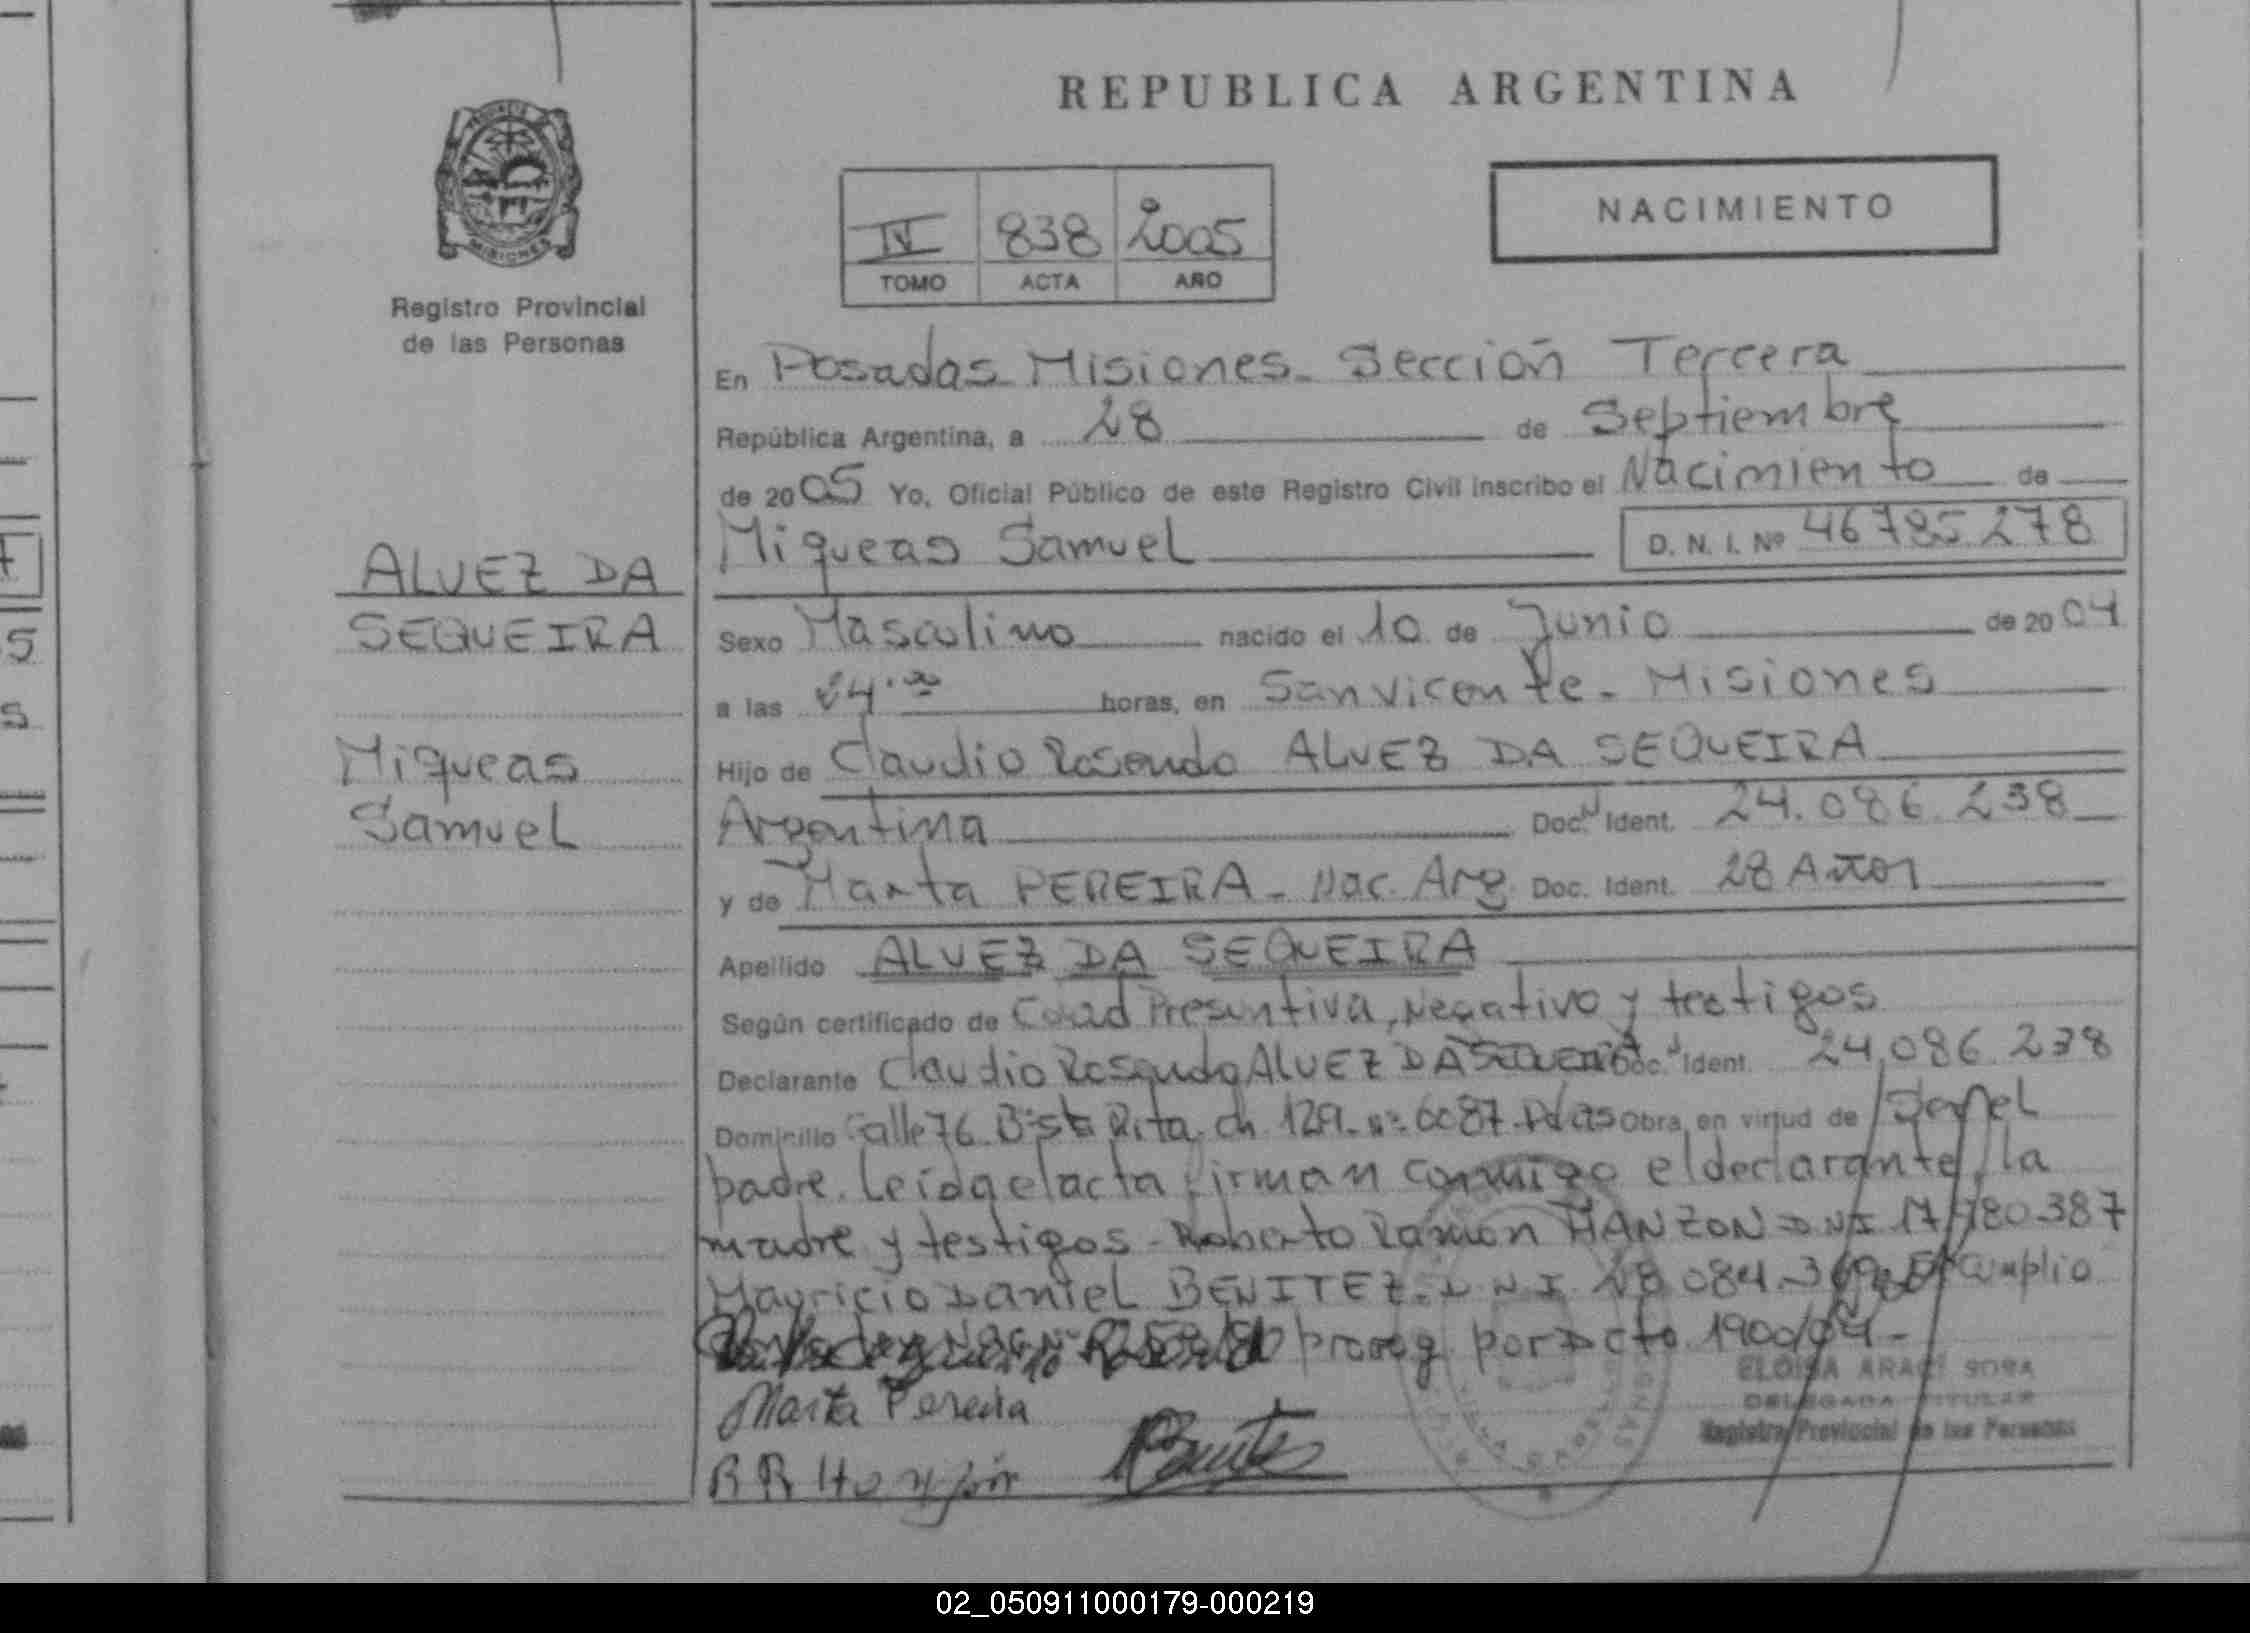 REPUBLICA ARGENTINA
NACIMIENTO
IV 838 2005
TOMO ACTA AÑO
PROVINCIA MISIONES
Registro Provincial
de las Personas
ALVEZ DA
SEQUEIRA
Miqueas
Samuel
En Posadas Misiones. Sección Tercera
República Argentina, a 28 de Septiembre
de 2005 Yo, Oficial Público de este Registro Civil inscribo el Nacimiento de
Miqueas Samuel D. N. I. Nº 46785278
Sexo Masculino nacido el 10 de Junio de 2004
a las 24.00 horas, en San Vicente - Misiones
Hijo de Claudio Rosendo ALVEZ DA SEQUEIRA
Argentina Doc. Ident. 24.086.238
y de Marta PEREIRA - Nac. Arg. Doc. Ident. 28 Años
Apellido ALVEZ DA SEQUEIRA
Según certificado de Edad Presuntiva, Negativo y testigos
Declarante Claudio Rosendo ALVEZ DA SEQUEIRA Doc. Ident. 24.086.238
Domicilio Calle 76 Bº Sta Rita ch 129 nº 6087 Pdas Obra en virtud de Ser el
padre. Leída el acta firman conmigo el declarante, la
madre y testigos - Roberto Ramón MANZON DNI 17.780.387
Mauricio Daniel BENITEZ. D N I 28.084. Cumplio
prorrog por Dcto 1900/04 -
ELOISA ARACI SOSA
DELEGADA TITULAR
Registro Provincial de las Personas
Marta Pereira
02_050911000179-000219